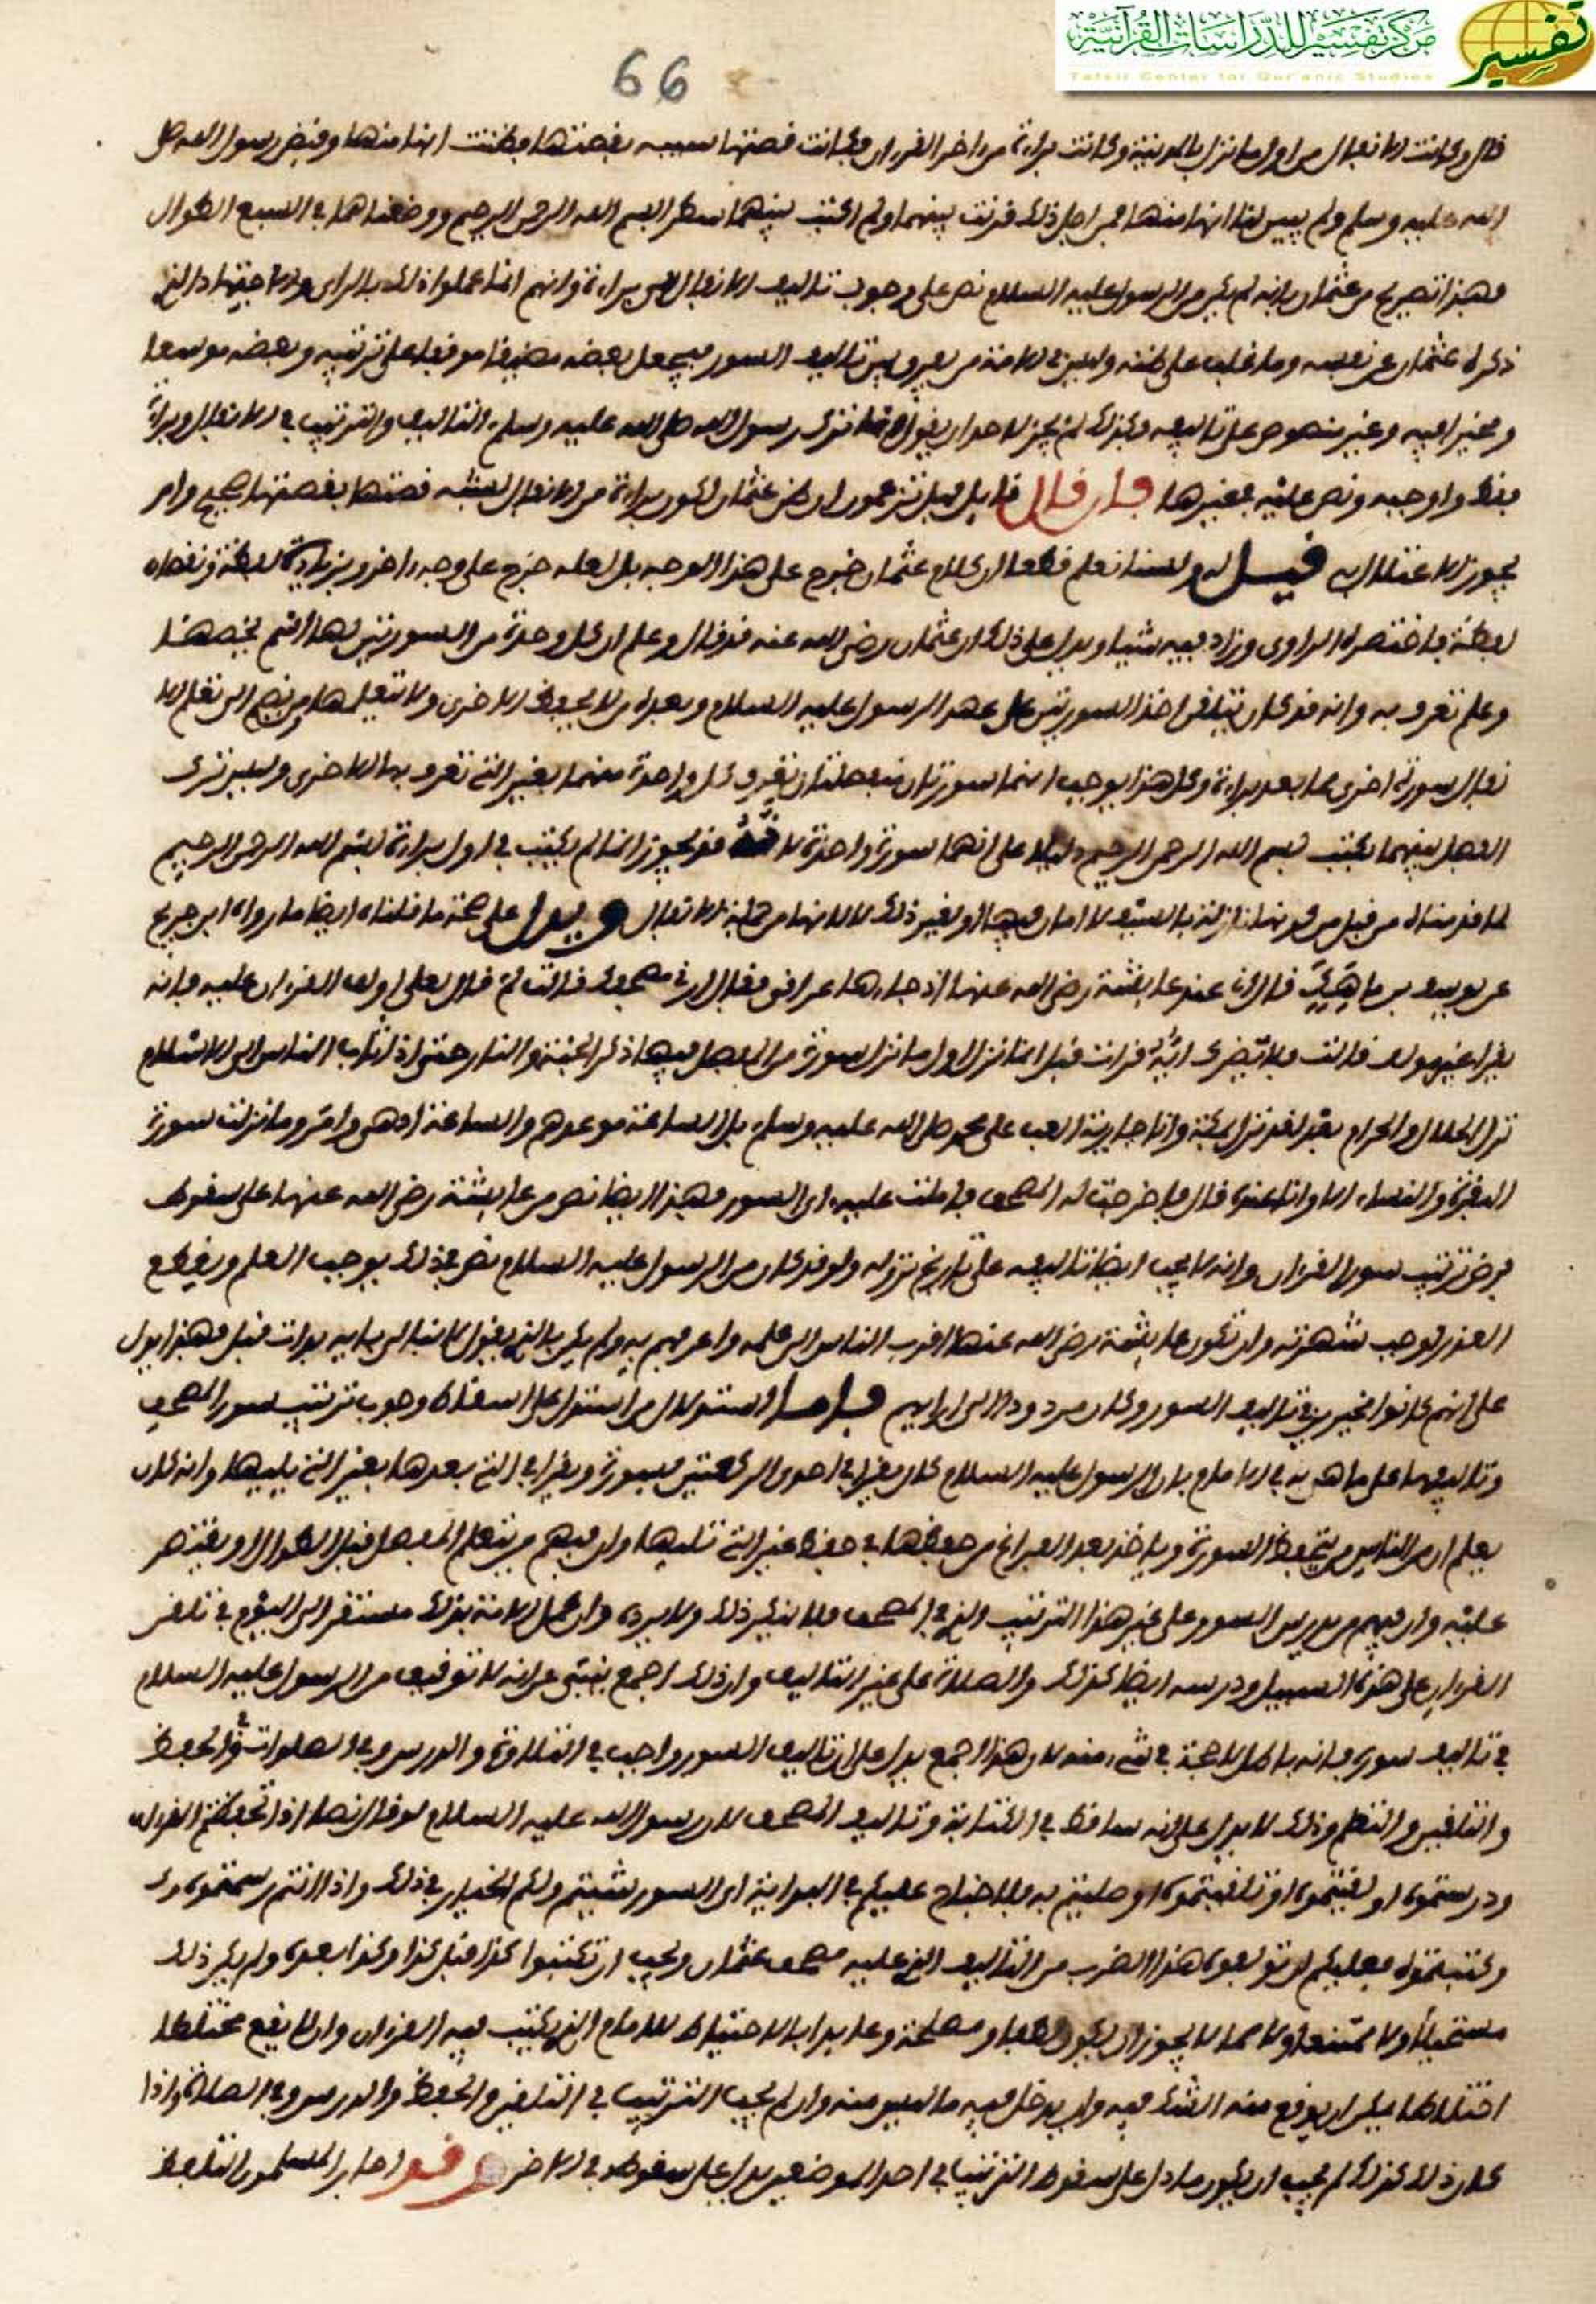 مركز تفسير للدراسات القرآنية
Tafsir Center for Qur'anic Studies
تفسير
66
قال وكانت الانفال من اول ما نزل بالمدينة وكانت براءة من اخر القرءان فكانت قصتها شبيهة بقصتها فظننت انها منها وقبض رسول الله صلى
الله عليه وسلم ولم يبين لنا انها منها فمن اجل ذلك قرنت بينهما ولم اكتب بينهما سطر بسم الله الرحمن الرحيم ووضعناها في السبع الطوال
فهذا تصريح من عثمان بانه لم يكن من الرسول عليه السلام نص على وجوب تاليف الانفال من براءة وانهم انما عملوا ذلك بالراي والاجتهاد الذي
ذكره عثمان عن نفسه وما غلب على ظنه وليس في الامة من يفرق بين تاليف السور فيجعل بعضه مضيقا موقفا على ترتيبه وبعضه موسعا
ومخيرا فيه وغير منصوص على تاليفه وكذلك لم يجز لاحد ان يقول انما ترك رسول الله صلى الله عليه وسلم التاليف والترتيب في الانفال وبراءة
فقط واوجبه ونص عليه في غيرها فان قال قايل فهل تزعمون ان ظن عثمان لكون براءة من الانفال لشبه قصتها بقصتها صحيح وامر
يجوز الاعتلال به قيل له لسنا نعلم قطعا ان كلام عثمان خرج على هذا الوجه بل لعله خرج على وجه اخر وبزيادة لفظة ونقصان
لفظة فاختصره الراوي وزاد فيه شيا ويدل على ذلك ان عثمان رضي الله عنه قد قال وعلم ان كل وحدة من السورتين لها اسم يخصها
وعلم تعرف به وانه قد كان يتلقى اخذ السورتين على عهد الرسول عليه السلام وبعده من لا يحفظ الاخرى ولا يتعلمها ومن يضم الى تعلم الا
نفال سورة اخرى مما بعد براءة وكل هذا يوجب انهما سورتان منفصلتان تعرف كل واحدة منهما بغير التي تعرف بها الاخرى وليس ترك
الفصل بينهما بكتب بسم الله الرحمن الرحيم دليلا على انهما سورة واحدة لانه قد يجوز انما لم يكتب في اول براءة بسم الله الرحمن الرحيم
لما قدمناه من قبل من كونها نازلة بالسيف لا امان فيها او لغير ذلك لا لانها من جملة الانفال ويدل على صحة ما قلناه ايضا ما رواه ابن جريج
عن يوسف بن ماهك قال اني عند عايشة رضي الله عنها اذ جاءها عراقي فقال اريني مصحفك قالت لم قال لعلي اولف القرءان عليه فانه
يقرا غير مولف قالت فلا يضرك ايه قرات قبل انما نزل اول ما نزل سورة من المفصل فيها ذكر الجنة والنار حتى اذا ثاب الناس الى الاسلام
نزل الحلال والحرام لقد نزل بمكة وانا جارية العب على محمد صلى الله عليه وسلم بل الساعة موعدهم والساعة ادهى وامر وما نزلت سورة
البقرة والنساء الا وانا عنده قال فاخرجت له المصحف فاملت عليه اى السور فهذا ايضا نص من عايشة رضي الله عنها على سقوط
فرض ترتيب سور القرءان وانه لا يجب ايضا تاليفه على تاريخ نزوله ولو قد كان من الرسول عليه السلام نص في ذلك يوجب العلم ويقطع
العذر لوجب شهرته وان تكون عايشة رضي الله عنها اقرب الناس الى علمه واعرفهم به ولم يكن بالذي يقول لا تبال باية بدات قبل فهذا يدل
على انهم كانوا مخيرين في تاليف السور وكان مردودا الى رايهم فاما استدلال من استدل على اسقاط وجوب ترتيب سور المصحف
وتاليفها على ما هي به في الامام بان الرسول عليه السلام كان يقرا في احدى الركعتين بسورة ويقرا في التي بعدها بغير التي يليها وانه كان
يعلم ان من الناس من يتحفظ السورة وياخذ بعد الفراغ من حفظها في حفظ غير التي تليها وان فيهم من يتعلم المفصل قبل الطوال او يقتصر
عليه وان فيهم من يدرس السور على غير هذا الترتيب الذي في المصحف فلا ينكر ذلك ولا يرده وان عمل الامة بذلك مستقر الى اليوم في تلقن
القرءان على هذه السبيل ودرسه ايضا كذلك والصلاة على غير التاليف وان ذلك اجمع ينبئ عن انه لا توقيف من الرسول عليه السلام
في تاليف سوره فانه باطل لا حجة في شيء منه لان هذا اجمع يدل على ان تاليف السور واجب في التلاوة والدرس وفي الصلوات وفي الحفظ
والتلقين والتعلم وذلك لا يدل على انه ساقط في الكتابة وتاليف المصحف لان رسول الله عليه السلام لو قال نصا اذا تحفظتم القرءان
ودرستموه او لقنتموه او تلقنتموه او صليتم به فلا جناح عليكم في البداية اى السور شيتم ولكم الخيار في ذلك واذا انتم رسمتموه
وكتبتموه فعليكم ان تولفوه هذا الضرب من التاليف الذي عليه مصحف عثمان ويجب ان تكتبوا كذا قبل كذا وكذا بعده ولم يكن ذلك
مستحيلا ولا ممتنعا ولا مما لا يجوز ان يكون لطفا ومصلحة وعايدا بالاحتياط للامام الذي يكتب فيه القرءان وان لا يقع مختلطا
اختلاطا يمكن ان يوقع منه الشك فيه وان يدخل فيه ما ليس منه وان لم يجب الترتيب في التلقن والحفظ والدرس وفي الصلاة واذا
كان ذلك كذلك لم يجب ان يكون ما دل على سقوط الترتيب في احد الموضعين يدل على سقوطه في الاخر وقد اجاز المسلمون التلفظ